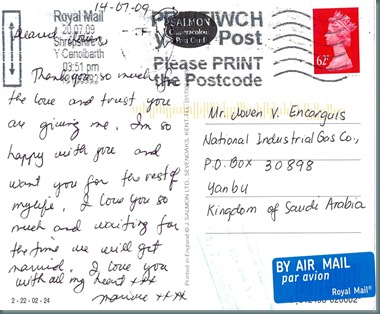 14-07-09
Royal Mail
20.07.09
Shropshire &
Y Canolbarth
03:51 pm
SALMON
Cameracolour
Post Card
Post
Please PRINT
the Postcode
62
Thank you so much for
the love and trust you
are giving me. I'm so
happy with you and
want you for the rest of
my life. I love you so
much and waiting for
the time we will get
married. I love you
with all my heart xxx
xxxx
Printed in England © J. SALMON LTD., SEVENOAKS, KENT
Mr. Joven V. Encarquis
National Industrial Gas Co.,
P.O. Box 30898
Yanbu
Kingdom of Saudi Arabia
BY AIR MAIL
par avion
Royal Mail®
2 - 22 - 02 - 24